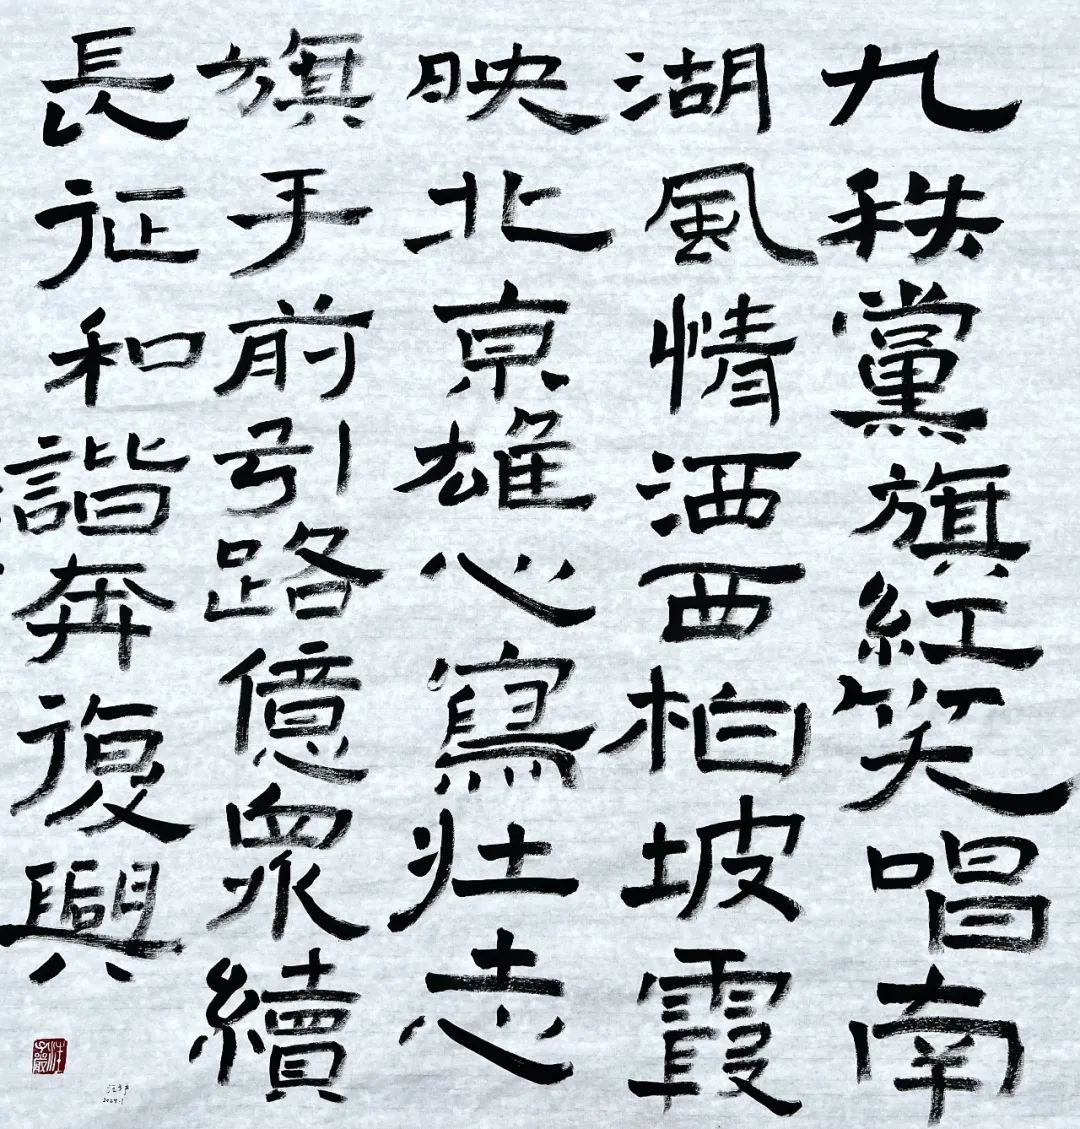 九秩黨旗紅笑唱南
湖風情洒西柏坡霞
映北京雄心寫壯志
旗手前引路億眾續
長征和諧奔復興